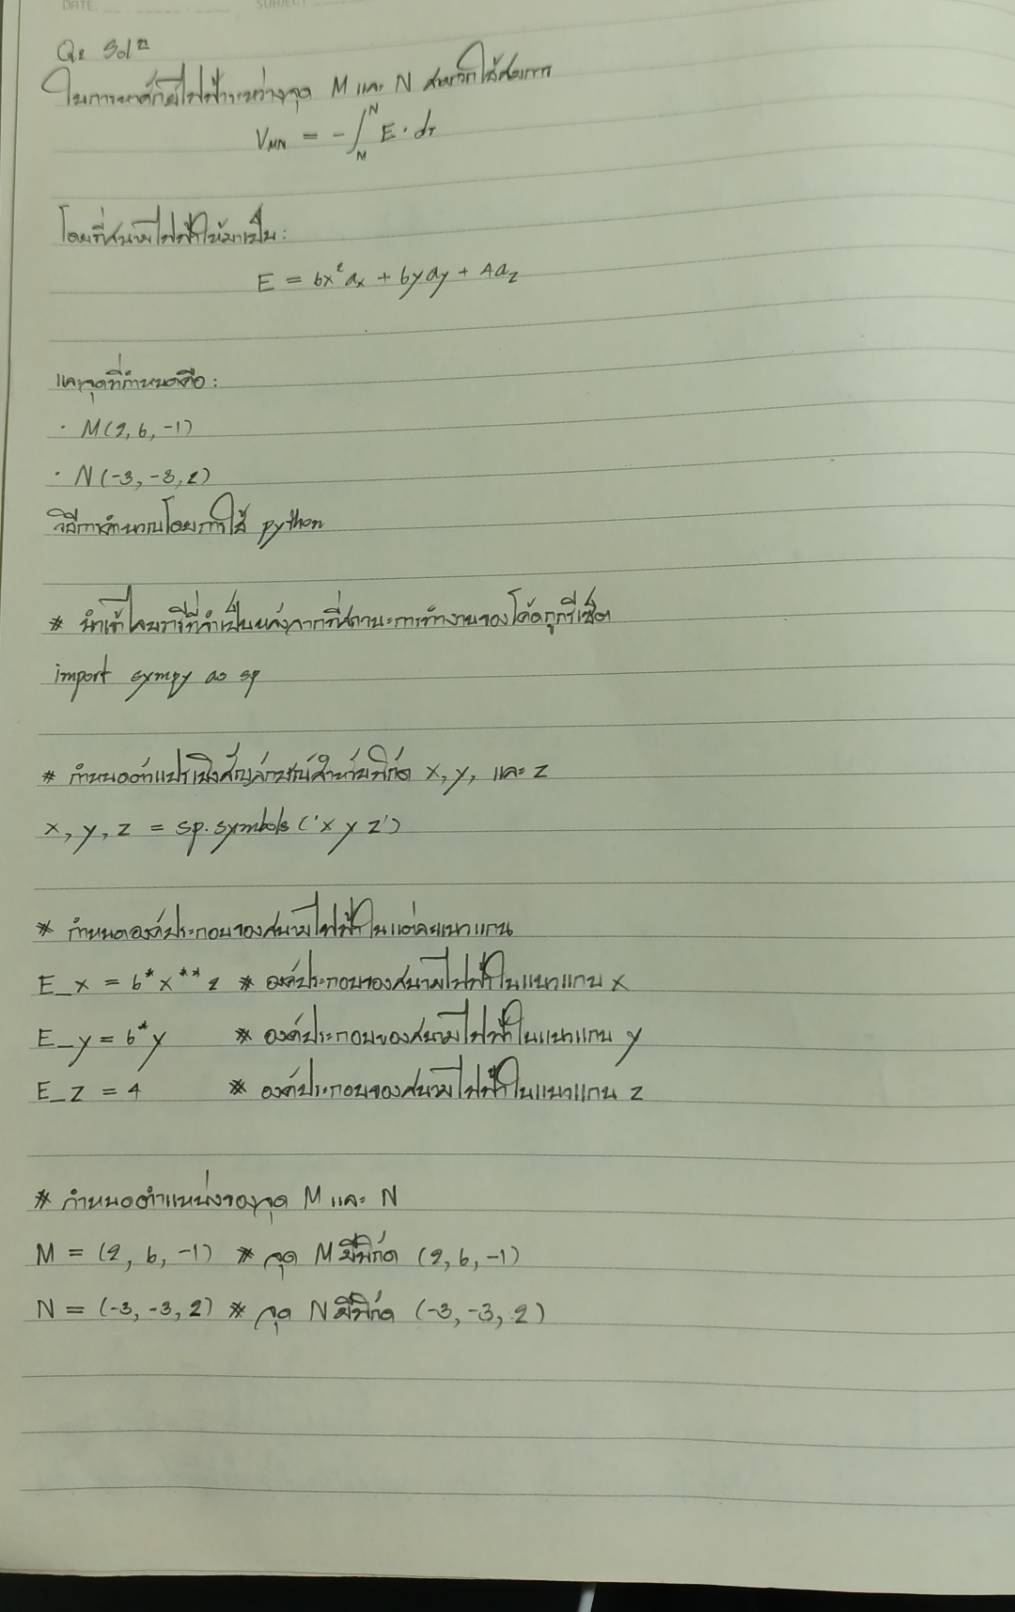 DATE SUBJECT
Q2 Solⁿ
ในการหาศักย์ไฟฟ้าระหว่างจุด M และ N สามารถใช้สมการ
V_MN = -∫_M^N E · dr
โดยที่สนามไฟฟ้าให้มาเป็น:
E = 6x² ax + 6y ay + 4az
และจุดที่กำหนดคือ:
· M(2, 6, -1)
· N(-3, -3, 2)
วิธีการคำนวณโดยการใช้ python
* นำเข้าไลบรารีที่จำเป็นหลังจากที่สถานะการทำงานของโค้ดถูกรีเซ็ต
import sympy as sp
* กำหนดตัวแปรเชิงสัญลักษณ์สำหรับพิกัด x, y, และ z
x, y, z = sp.symbols('x y z')
* กำหนดองค์ประกอบของสนามไฟฟ้าในแต่ละแนวแกน
E_x = 6*x**2 * องค์ประกอบของสนามไฟฟ้าในแนวแกน x
E_y = 6*y * องค์ประกอบของสนามไฟฟ้าในแนวแกน y
E_z = 4 * องค์ประกอบของสนามไฟฟ้าในแนวแกน z
* กำหนดตำแหน่งของจุด M และ N
M = (2, 6, -1) * จุด M มีพิกัด (2, 6, -1)
N = (-3, -3, 2) * จุด N มีพิกัด (-3, -3, 2)